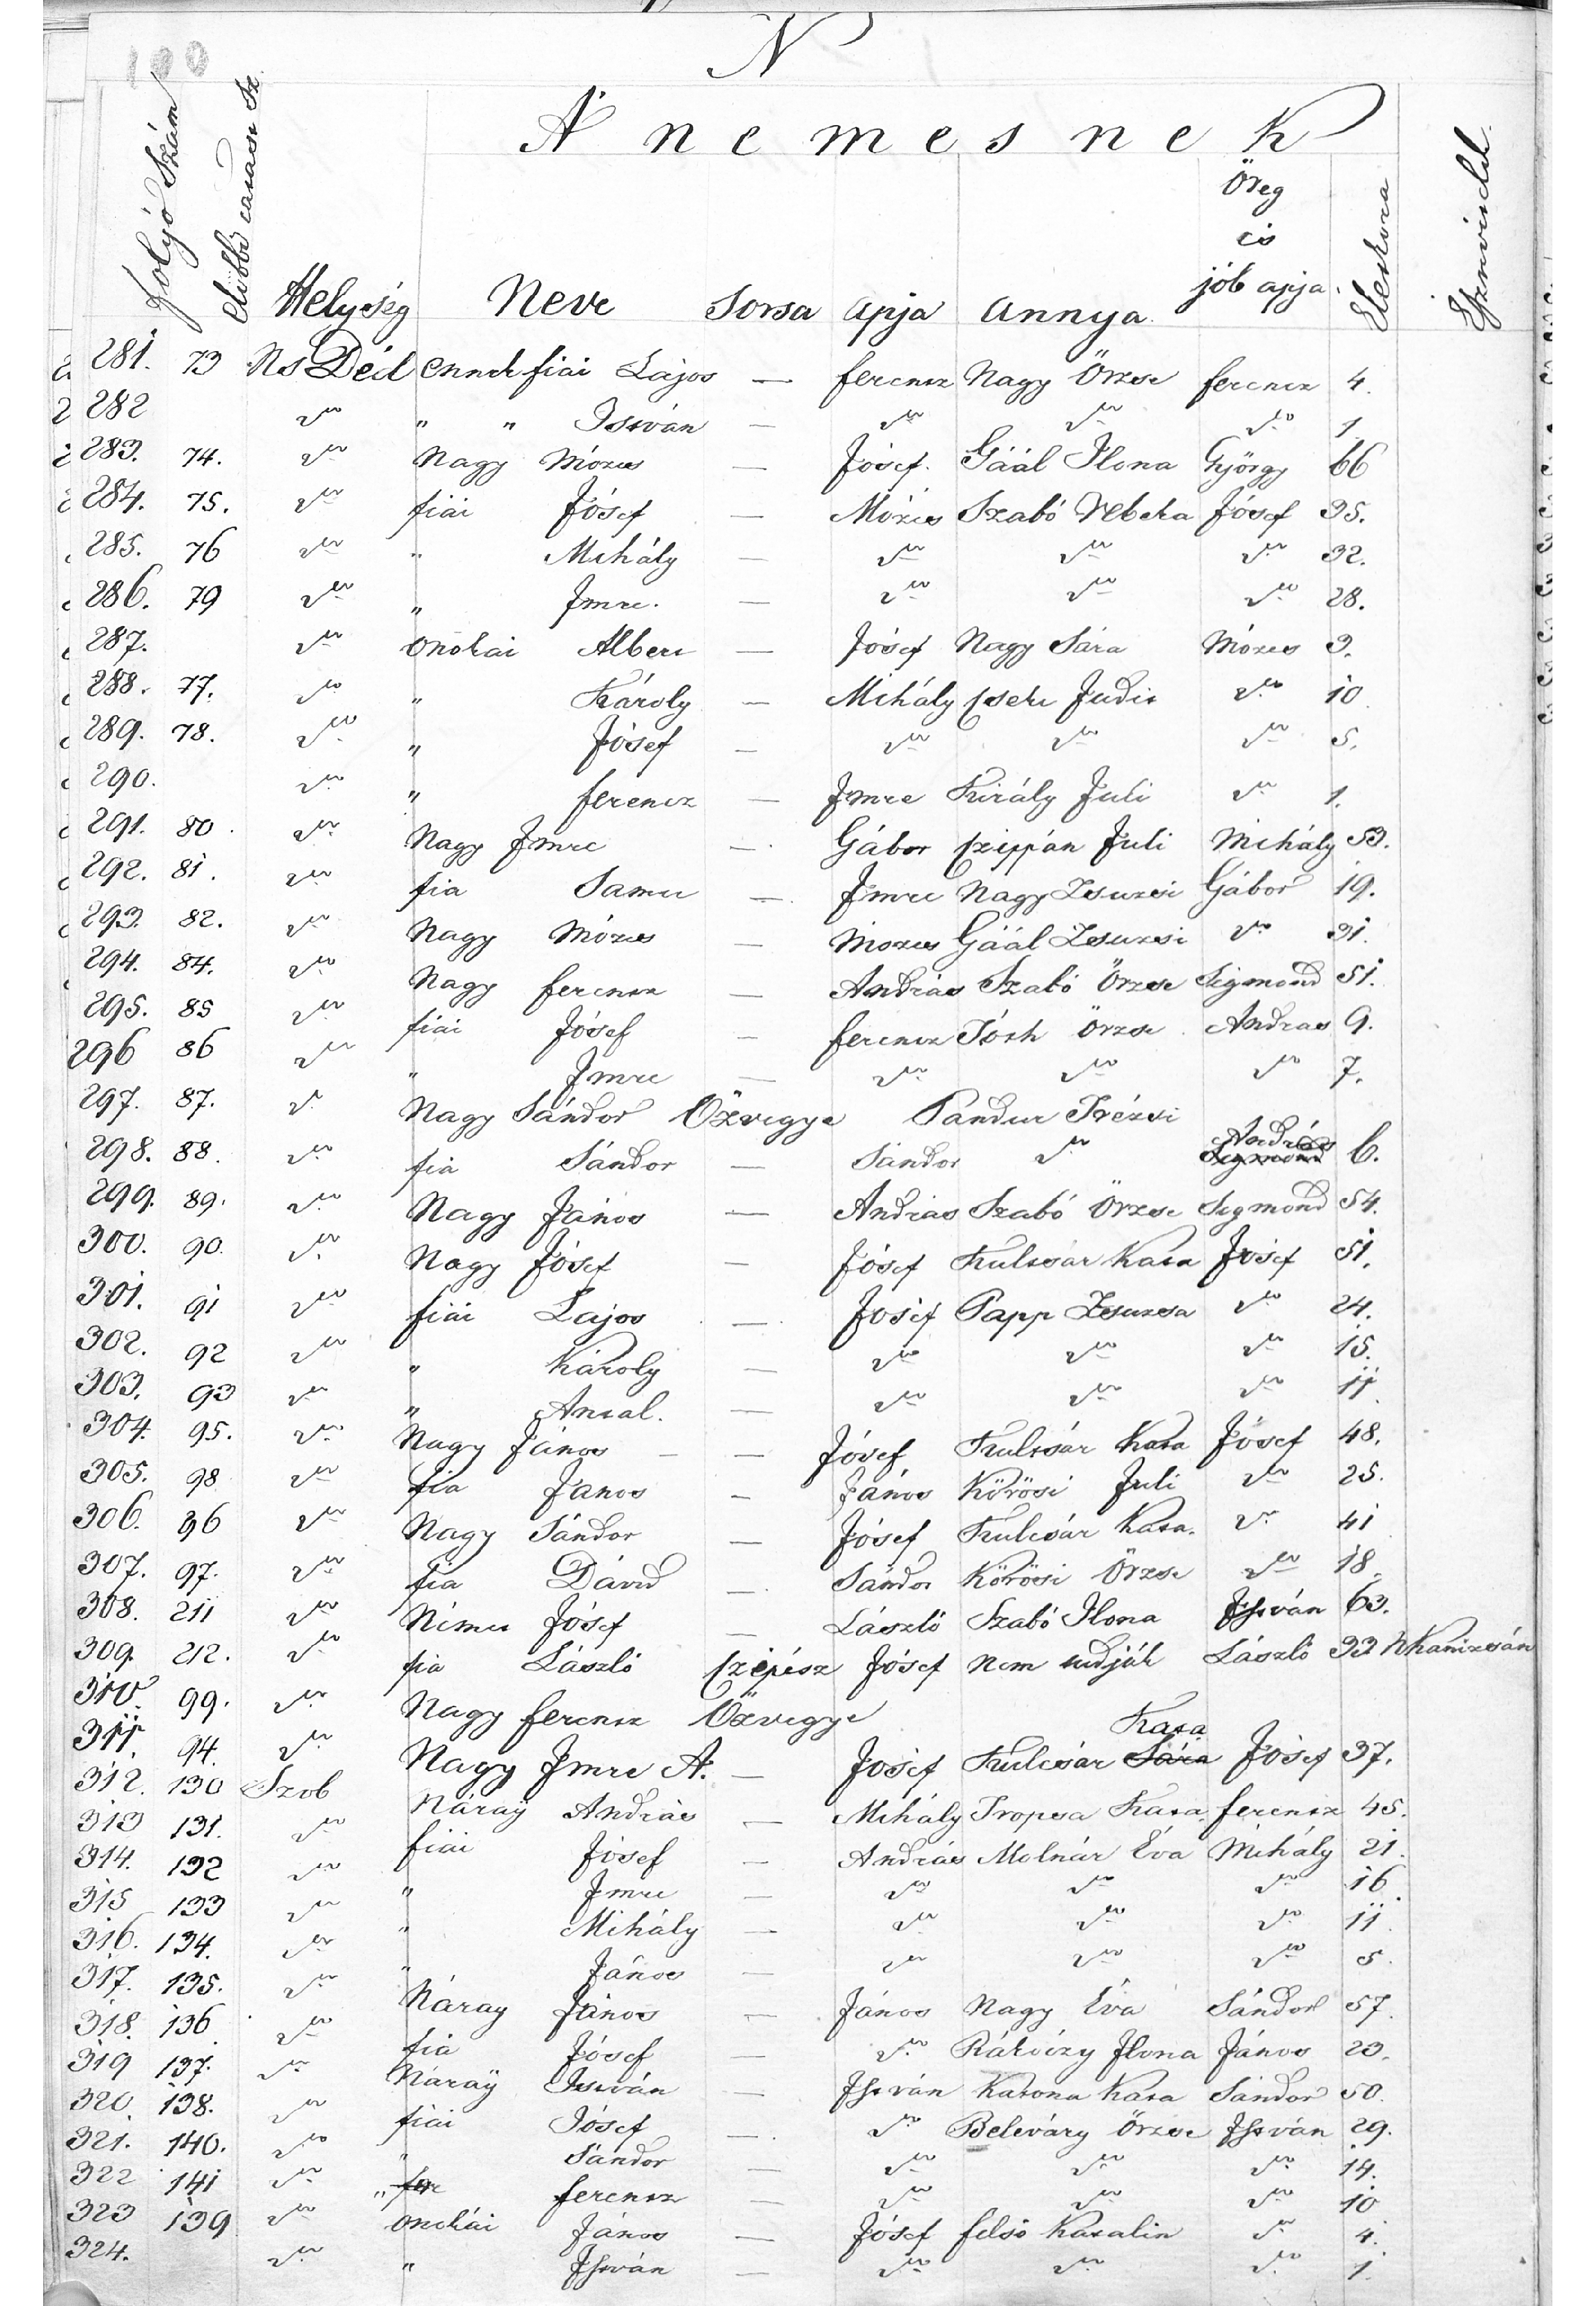 100
N
A nemesnek
folyó Szám
Helység Neve Sorsa apja annya Öreg és jób apja Életkora Észrevétel
281. 73 Ns Déd ennek fiai Lajos — ferencz Nagy Örzse ferencz 4.
282 do " " István — do do do 1
283. 74. do Nagy Mózes — Jósef. Gáál Ilona György 66
284. 75. do fiai Jósef — Mózes Szabó Rebeka Jósef 35.
285. 76 do " Mihály — do do do 32.
286. 79 do " Imre. — do do do 28.
287. do onokai Albert — Jósef Nagy Sára Mózes 3.
288. 77. do " Károly — Mihály Cseke Judit do 10
289. 78. do " Jósef — do do do 5.
290. do " ferencz — Imre Király Juli do 1.
291. 80. do Nagy Imre — Gábor Czippán Juli Mihály 53.
292. 81. do fia Samu — Imre Nagy Zsuzsi Gábor 19.
293. 82. do Nagy Mózes — Mozes Gáál Zsuzsi do 31.
294. 84. do Nagy ferencz — András Szabó Örzse Sigmond 51.
295. 85 do fiai Jósef — ferencz Tóth Örzse Andras 9.
296 86 do " Imre — do do do 7.
297. 87. do Nagy Sándor Özvegye Pandur Trézsi
298. 88. do fia Sándor — Sándor do András Sigmond 6.
299. 89. do Nagy János — Andras Szabó Örzse Sigmond 54.
300. 90. do Nagy Jósef — Jósef Kultsár Kata Jósef 51.
301. 91 do fiai Lajos — Josef Papp Zsuzsa do 24.
302. 92 do " Károly — do do do 15.
303. 93 do " Antal. — do do do 11.
304. 95. do Nagy János — — Jósef Kultsár Kata Jósef 48.
305. 98 do fia János — János Körösi Juli do 25.
306. 96 do Nagy Sándor — Jósef Kulcsár Kata. do 41
307. 97. do fia Dávid — Sándor Körösi Örzse do 18.
308. 211 do Német Jósef — László Szabó Ilona István 63.
309. 212. do fia László Czipész Jósef nem tudják László 33 NKanizsán
310. 99. do Nagy ferencz Özvegye
311. 94. do Nagy Imre A. — Jósef Kulcsár Sára Kata Jósef 37.
312. 130 Szob Náraÿ András — Mihály Tropsa Kata ferencz 45.
313 131. do fiai Jósef — András Molnár Éva Mihály 21.
314. 132 do " Imre — do do do 16
315 133 do " Mihály — do do do 11.
316. 134. do " János — do do do 5.
317. 135. do Náray János — János Nagy Éva Sándor 57.
318. 136 do fia Jósef — do Rákóczy Ilona János 23.
319 137. do Náraÿ István — István Katona Kata Sándor 50.
320. 138. do fiai Jósef — do Beleváry Örzse István 29.
321. 140. do " Sándor — do do do 14.
322 141 do " fer ferencz — do do do 10
323 139 do onokái János — Jósef felső Katalin do 4.
324. do " István — do do do 1